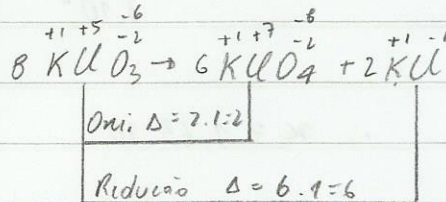 -6 -8
+1 +5 -2 +1 +7 -2 +1 -1
8 KClO3 → 6 KClO4 + 2 KCl
Oxi. Δ = 2.1=2
Redução Δ = 6.1=6